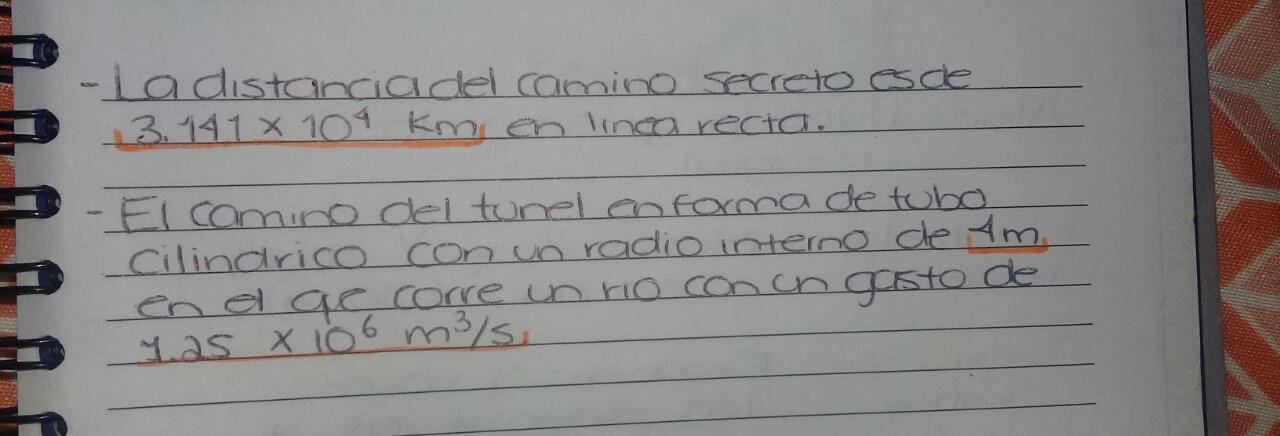 - La distancia del camino secreto es de
3.141 x 10⁴ Km, en linea recta.
- El camino del tunel en forma de tubo
cilindrico con un radio interno de 1m,
en el qe corre un rio con un gasto de
1.25 x 10⁶ m³/s,